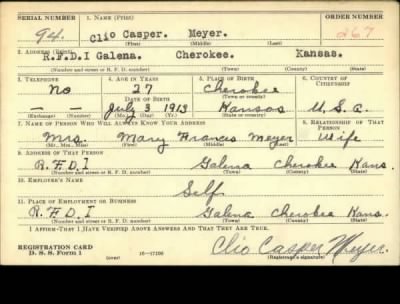 SERIAL NUMBER 1. NAME (Print) ORDER NUMBER
94. Clio Casper. Meyer. 267
(First) (Middle) (Last)
2. ADDRESS (Print)
R.F.D.I Galena. Cherokee. Kansas.
(Number and street or R. F. D. number) (Town) (County) (State)
3. TELEPHONE 4. AGE IN YEARS 5. PLACE OF BIRTH 6. COUNTRY OF CITIZENSHIP
No 27 Cherokee
DATE OF BIRTH (Town or county)
— — July 3 1913 Kansas U.S.A.
(Exchange) (Number) (Mo.) (Day) (Yr.) (State or country)
7. NAME OF PERSON WHO WILL ALWAYS KNOW YOUR ADDRESS 8. RELATIONSHIP OF THAT PERSON
Mrs. Mary Francis Meyer Wife
(Mr., Mrs., Miss) (First) (Middle) (Last)
9. ADDRESS OF THAT PERSON
R.F.D.I Galena Cherokee Kans.
(Number and street or R. F. D. number) (Town) (County) (State)
10. EMPLOYER'S NAME
Self
11. PLACE OF EMPLOYMENT OR BUSINESS
R.F.D.I Galena Cherokee Kans.
(Number and street or R. F. D. number) (Town) (County) (State)
I AFFIRM THAT I HAVE VERIFIED ABOVE ANSWERS AND THAT THEY ARE TRUE.
REGISTRATION CARD Clio Casper Meyer.
D. S. S. Form 1 (over) 16—17105 (Registrant's signature)